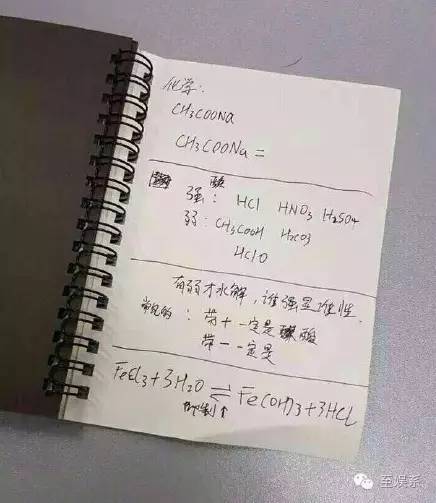 化学:
CH3COONa
CH3COONa =
酸
强: HCl HNO3 H2SO4
弱: CH3COOH H2CO3
HClO
有弱才水解，谁强显谁性.
常见的: 带+一定是酸
带-一定是
FeCl3+3H2O⇌Fe(OH)3+3HCl
抑制↑
至娱系